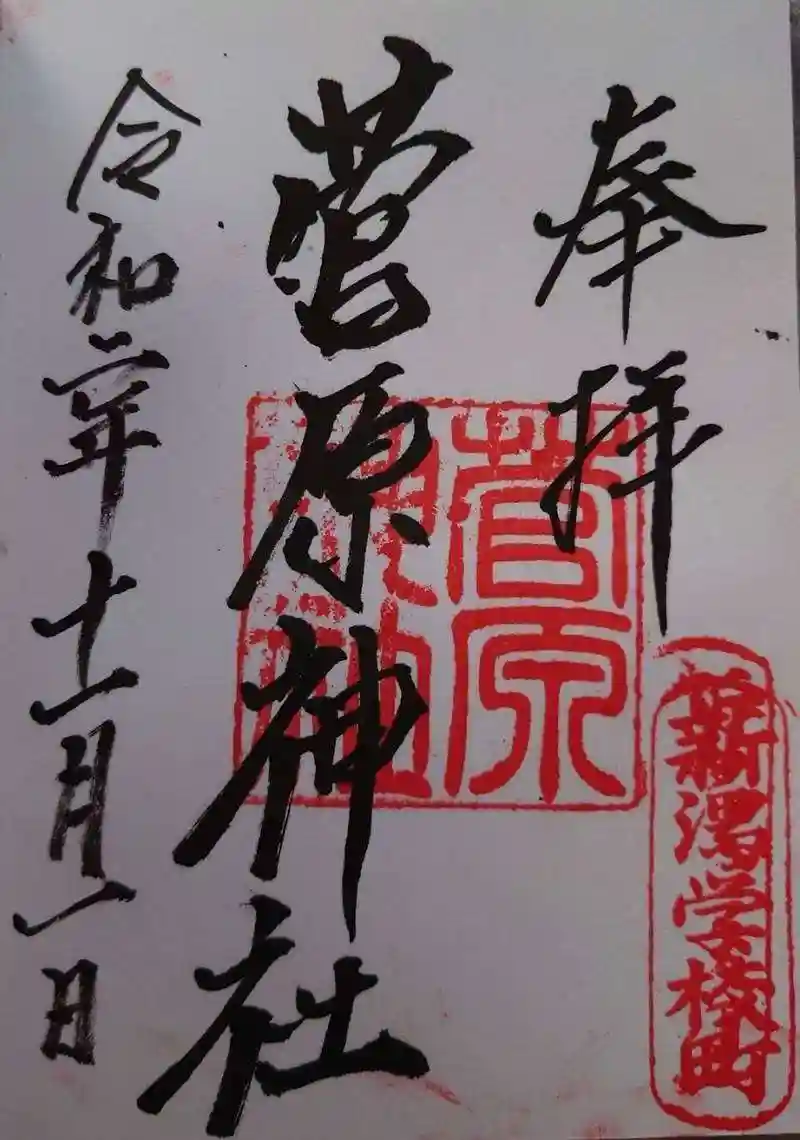 奉拝
菅原神社
令和二年十一月一日
菅原神社
新潟学校町